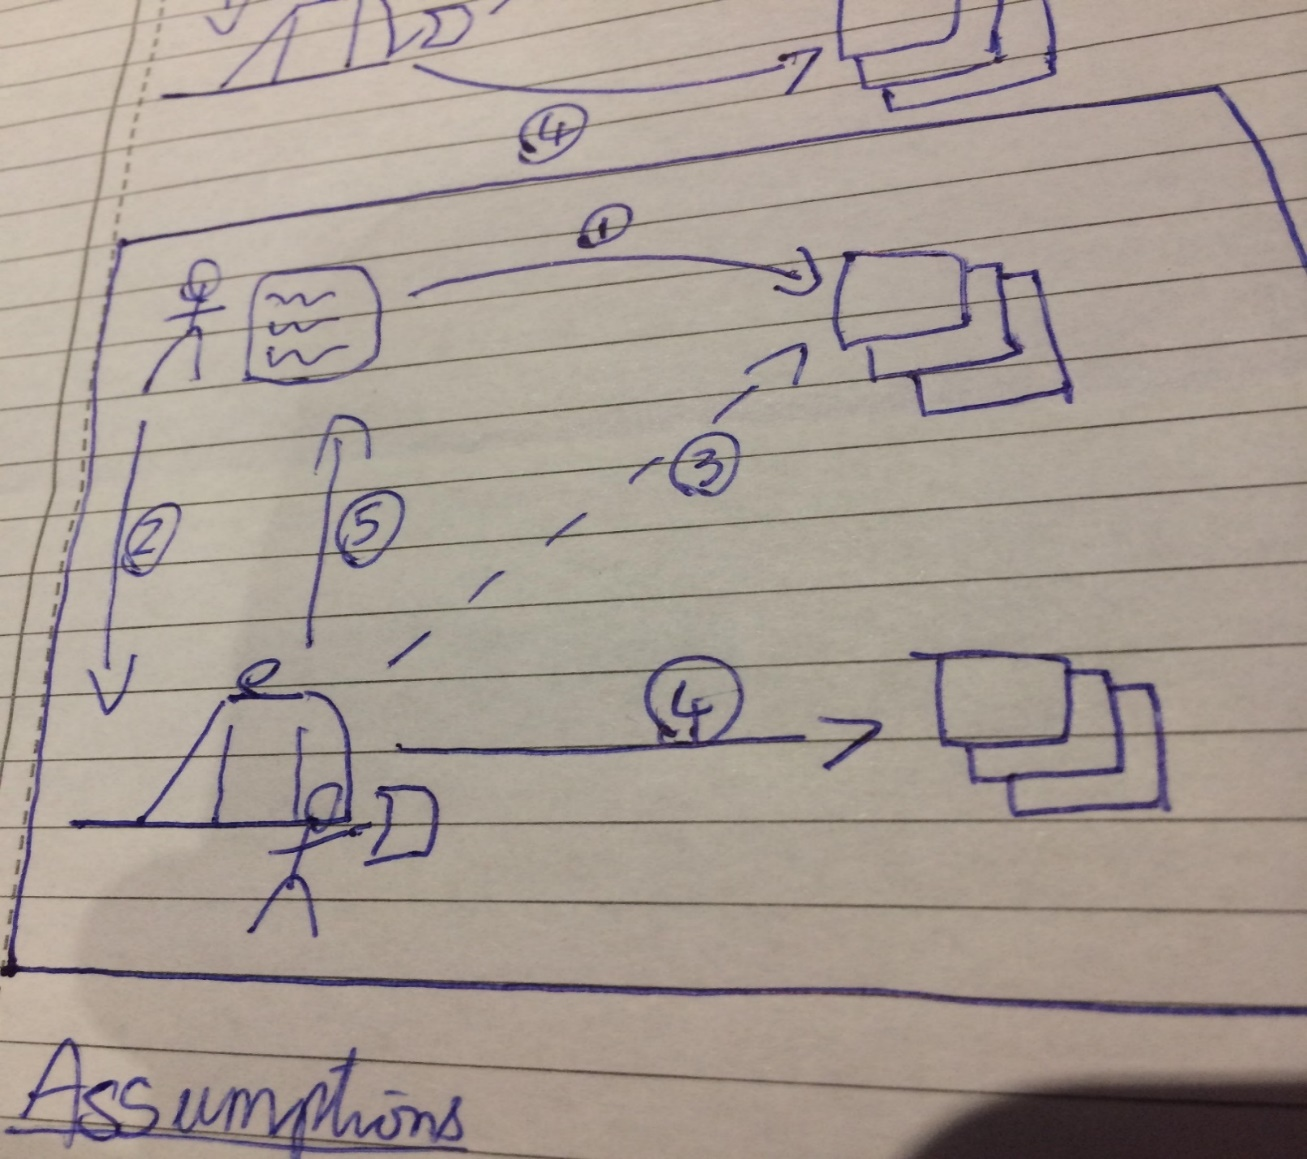 4
1
3
2
5
4
Assumptions